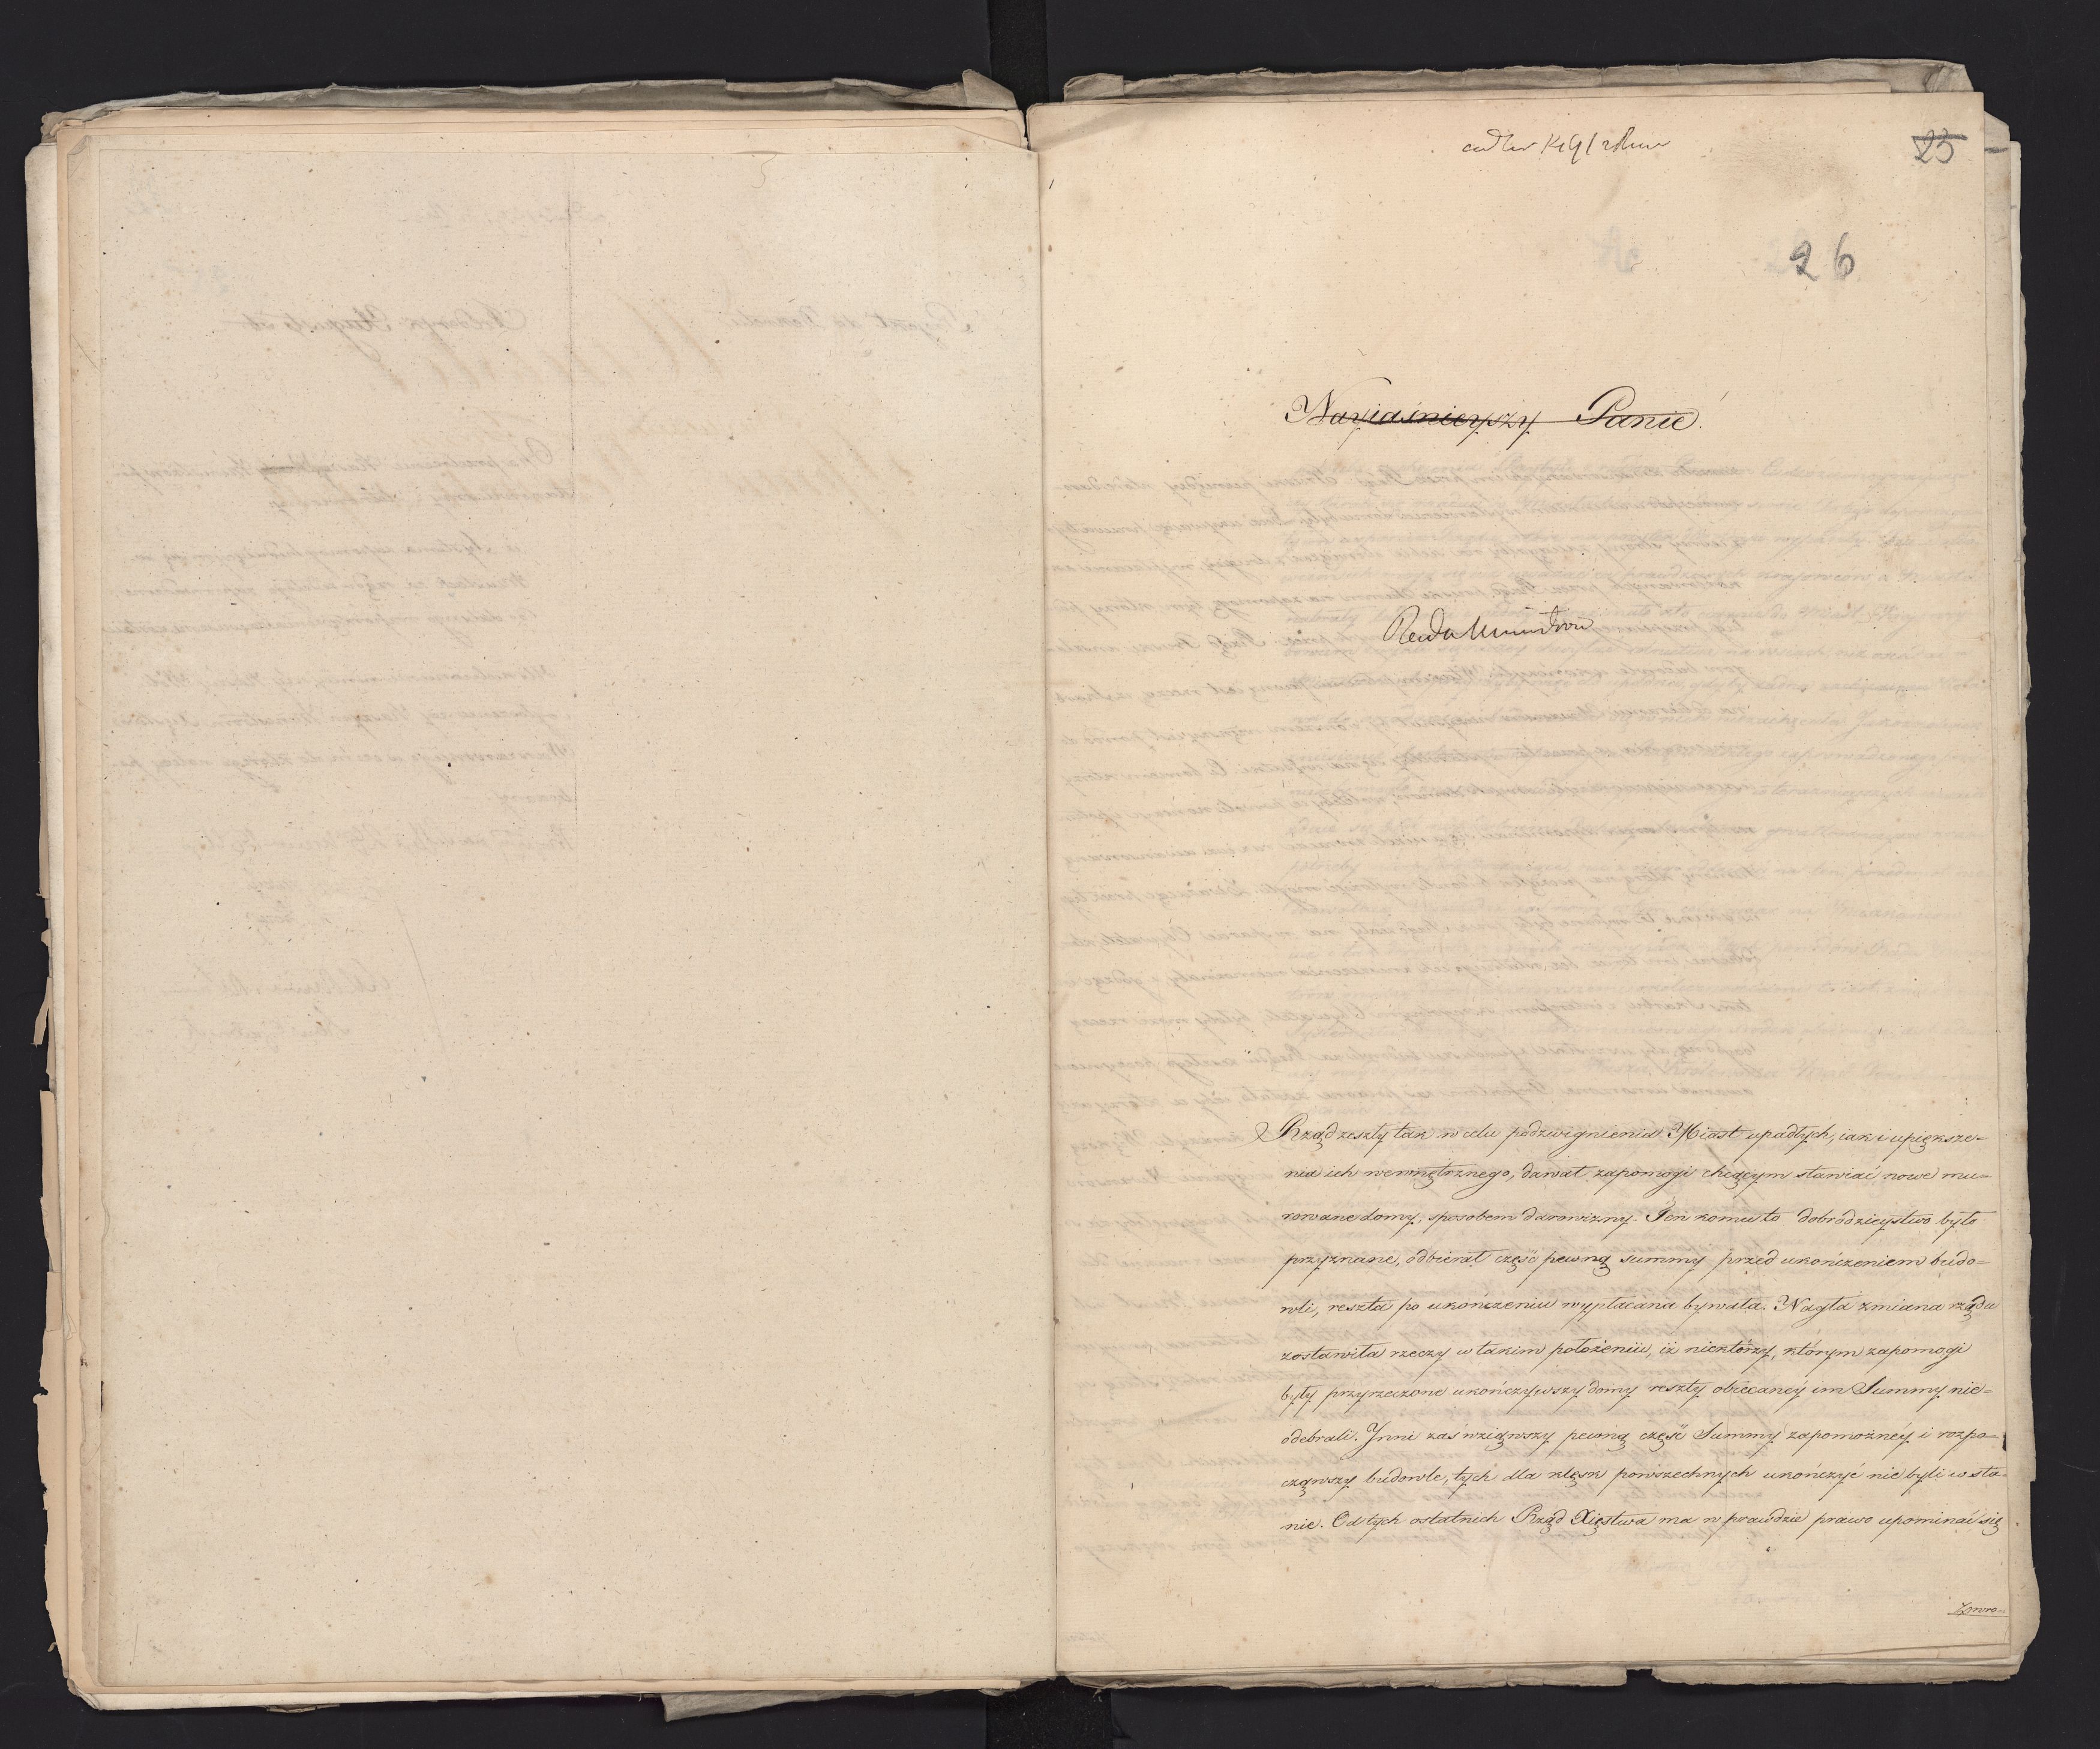 25
26
Nayiaśnieyszy Panie!
Rada Ministrow
Rząd zeszły tak w celu podzwignienia Miast upadłych, iak i upiększe=
nia ich wewnętrznego, dawał zapomogi chcącym stawiać nowe mu=
rowane domy, sposobem darowizny. Ten komu to dobrodzieystwo było
przyznane, odbierał część pewną summy przed ukończeniem budo=
wli, reszta po ukończeniu wypłacana bywała. Nagła zmiana rządu
zostawiła rzeczy w takim położeniu, iż niektórzy, którym zapomogi
były przyrzeczone ukończywszy domy reszty obiecanéy im Summy nie=
odebrali. Jnni zaś wziąwszy pewną część Summy zapomożnéy i rozpo=
cząwszy budowle, tych dla klęsk powszechnych ukończyć nie byli w sta=
nie. Od tych ostatnich Rząd Xięstwa ma w prawdzie prawo upominać się
zwro=